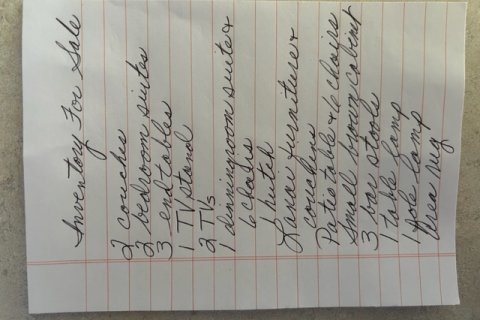 Inventory For Sale
2 couches
2 bedroom suites
3 end tables
1 TV stand
2 TVs
1 dinningroom suite &
6 chairs
1 hutch
Lanai furniture &
couchins
Patio table & 6 chairs
Small brown cabinet
3 bar stools
1 table lamp
1 pole lamp
Area rug